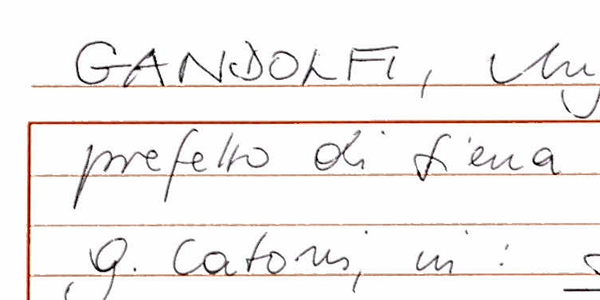 GANDOLFI,
prefetto di Siena
G. Catoni, in: